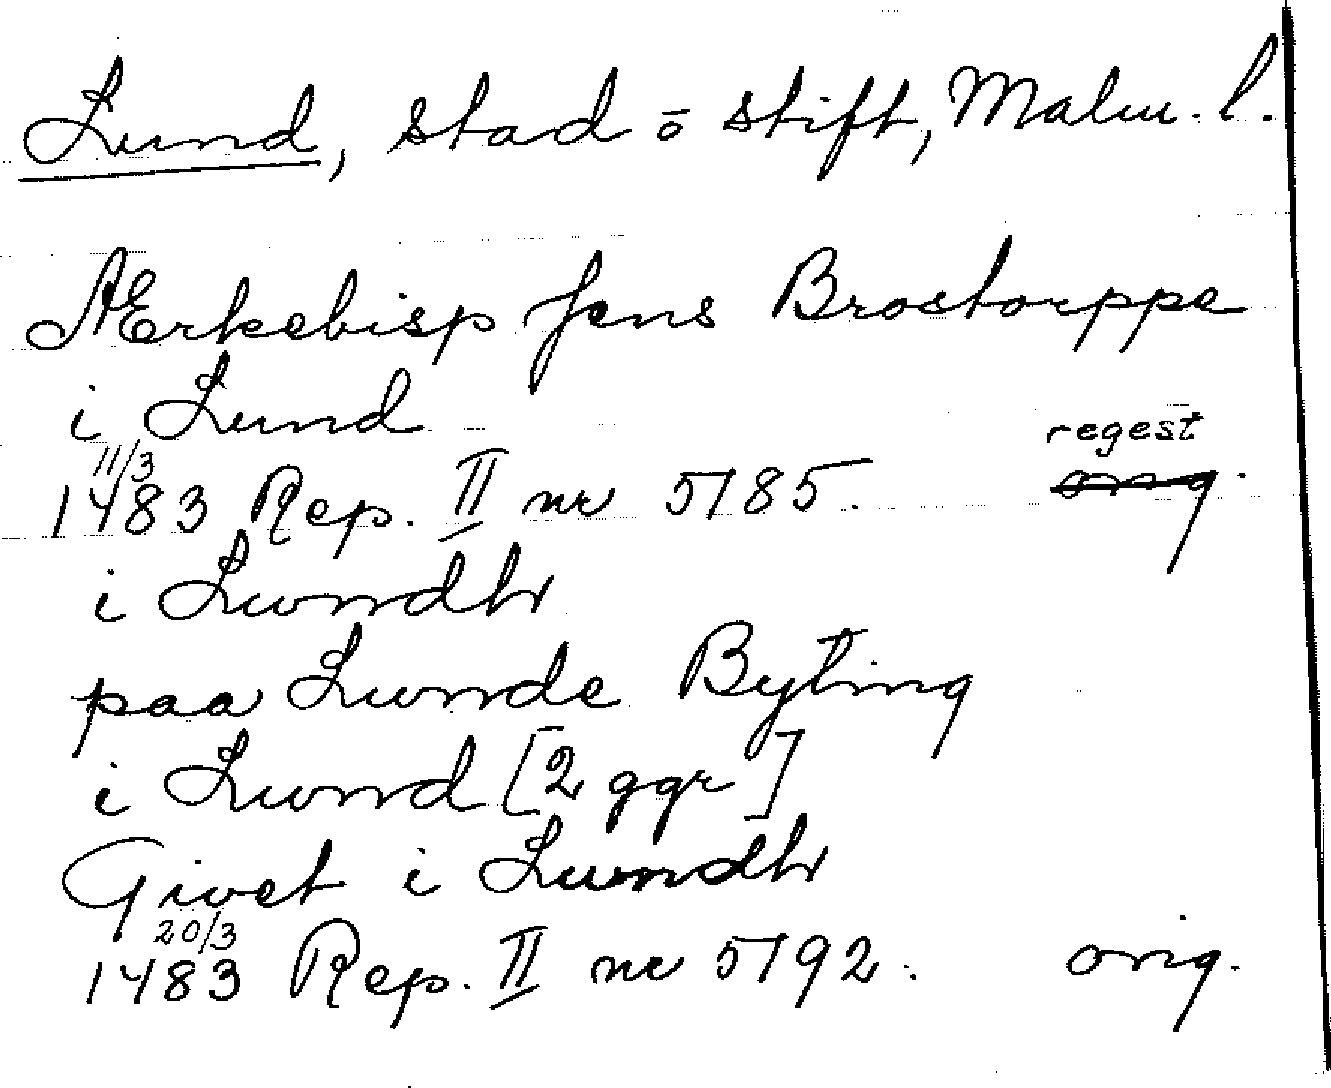 Lund, stad o stift, Malm. l.
Ærkebisp Jens Brostorppe
i Lund
regest
11/3
1483 Rep. II nr 5185. orig.
i Lwndh
paa Lwnde Byting
i Lwnd [2 ggr]
Givet i Lundh
20/3
1483 Rep. II nr 5192. orig.